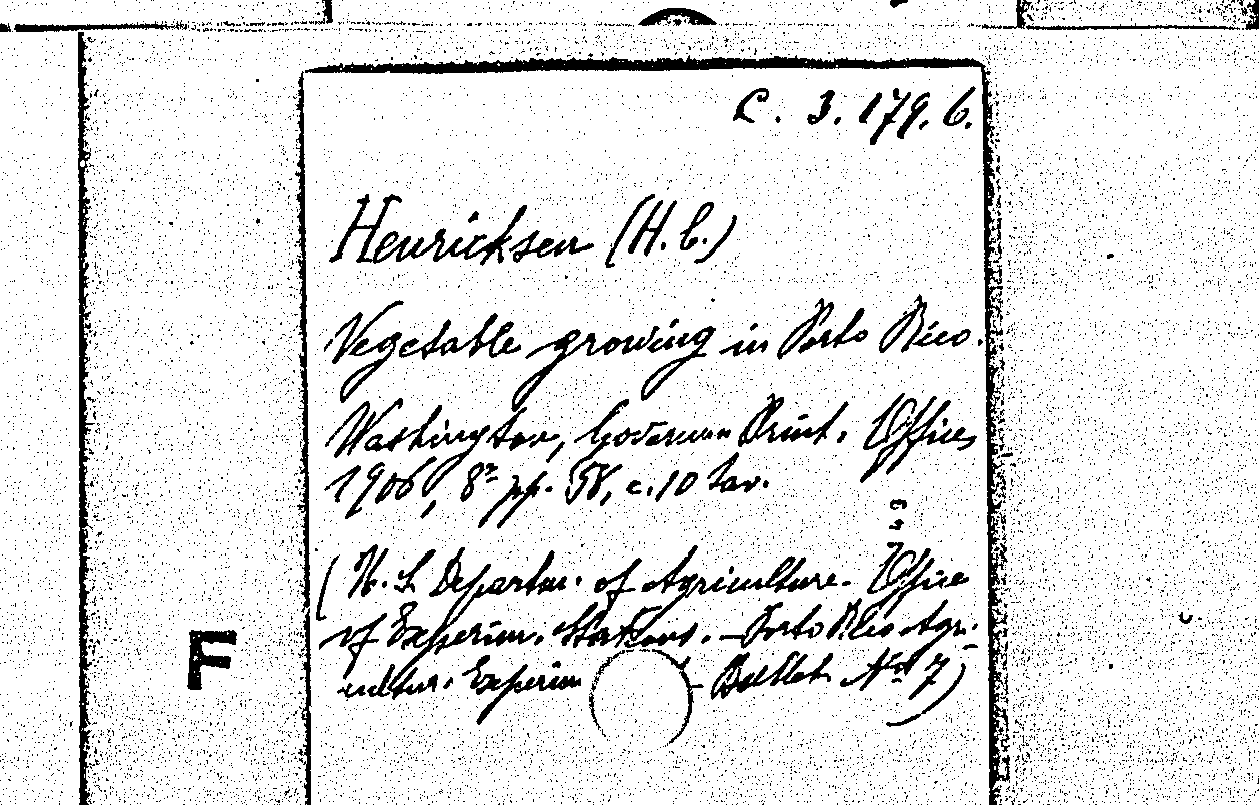 C. 3. 179. 6.
Henricksen (H. C.)
Vegetable growing in Porto Rico.
Washington, Governm Print. Office,
1906, 8° pp. 58, c. 10 tav.
(U. S. Departm. of Agriculture. Office
of Experim. Stations. — Porto Rico Agri-
cultur. Experim - Bullet. No. 7)
F